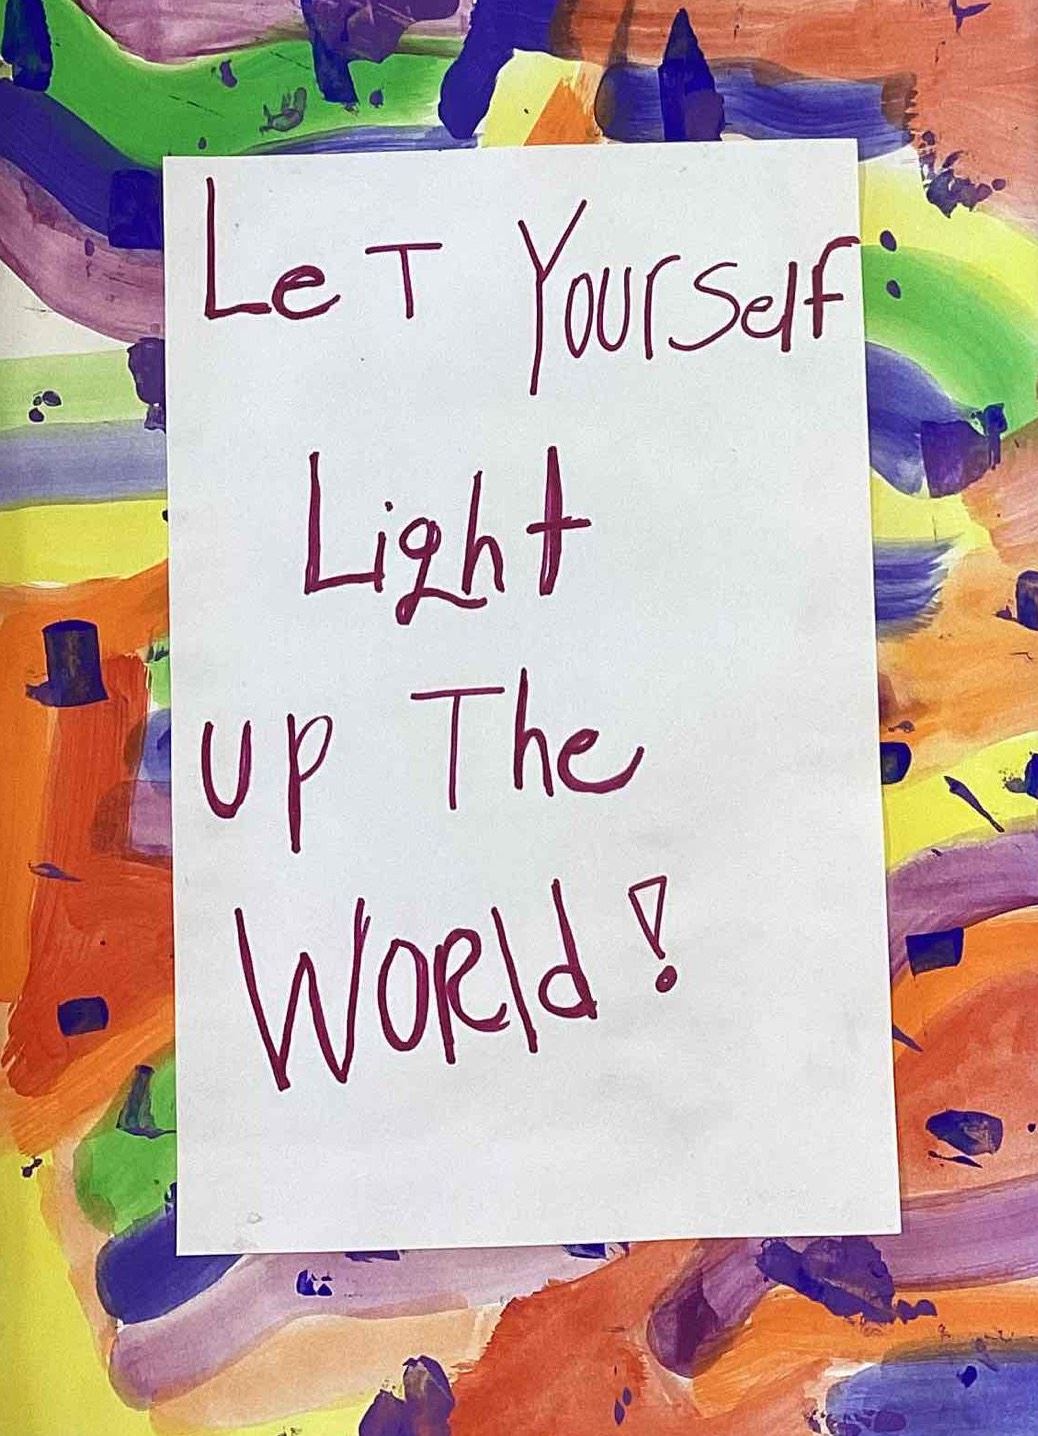 LeT YourSelf
Light
up The
WORld!